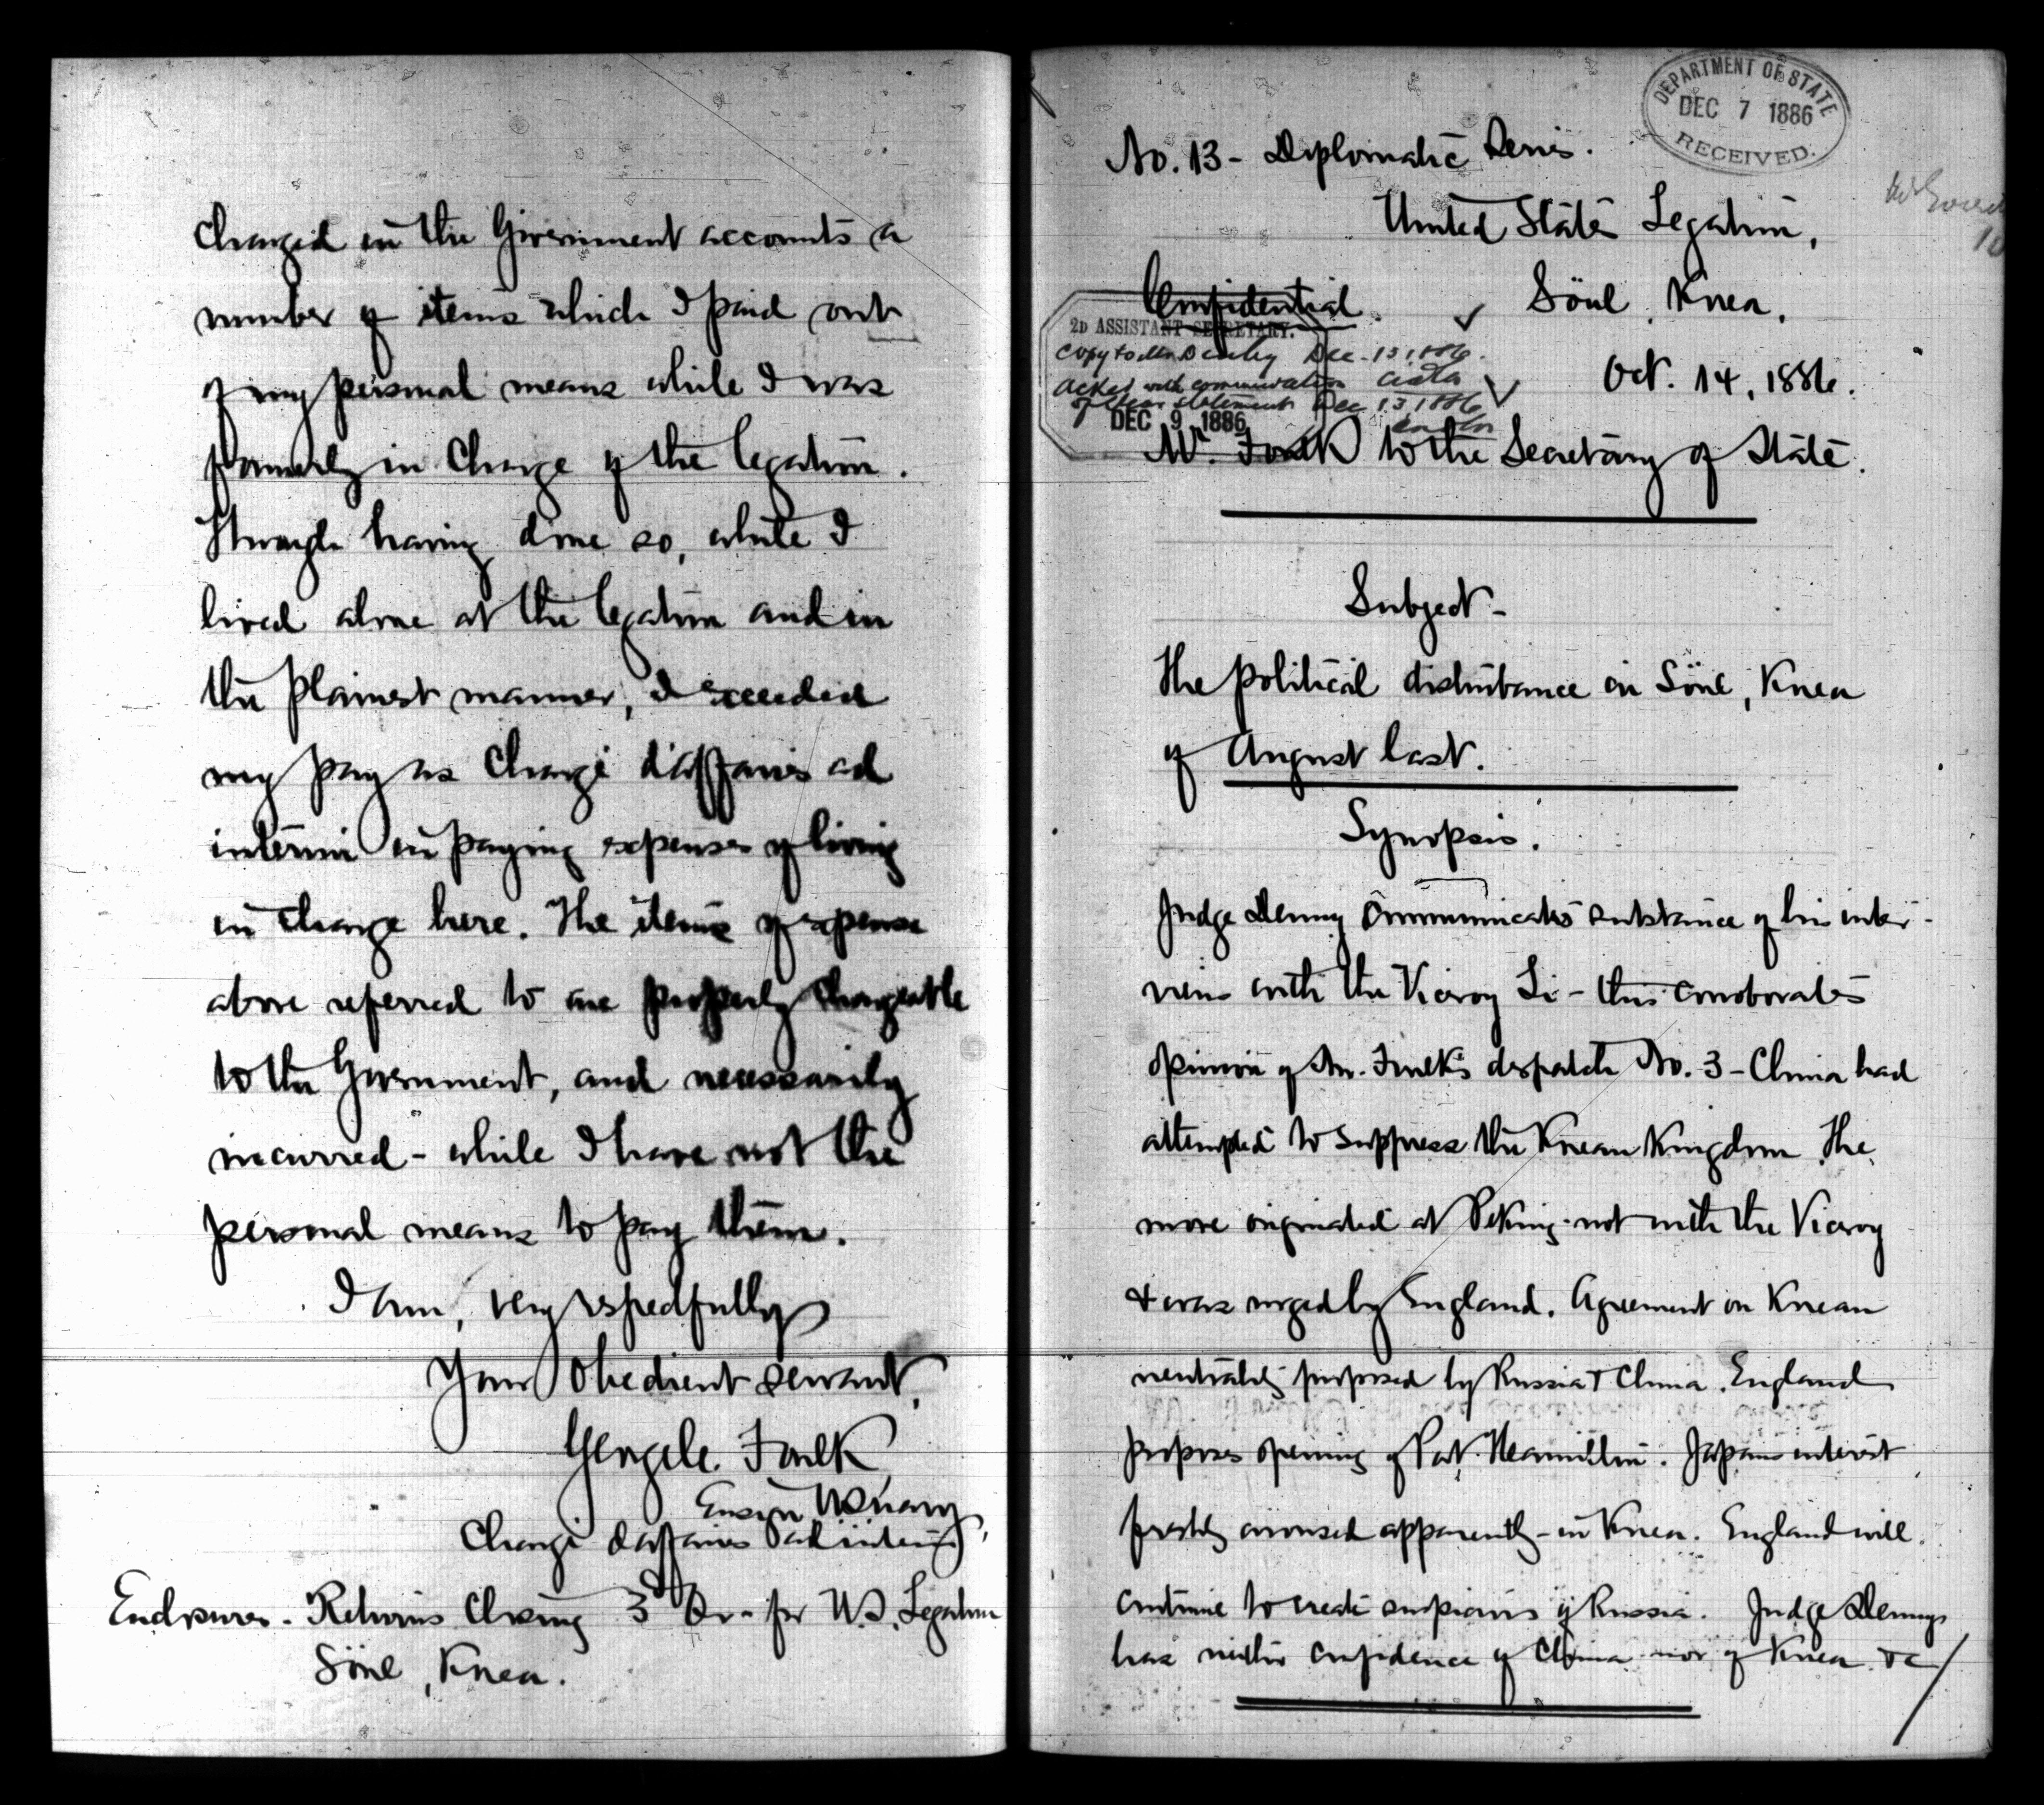 charged in the Government accounts a
number of items which I paid out
of my personal means while I was
formerly in charge of the legation.
Through having done so, while I
lived alone at the legation and in
the plainest manner, I exceeded
my pay as Chargé d'affaires ad
interim in paying expenses of living
in charge here. The items of expense
above referred to are properly chargeable
to the Government, and necessarily
incurred - while I have not the
personal means to pay them.
I am, very respectfully
Your obedient servant,
George C. Foulk
Ensign US Navy,
Chargé d'affaires ad interim
Enclosures - Returns closing 3d Qr - for U.S. Legation
Söul, Korea.
DEPARTMENT OF STATE
DEC 7 1886
RECEIVED.
No. 13 - Diplomatic Series.
United States Legation,
Confidential. Söul, Korea,
2D ASSISTANT SECRETARY.
Copy to Mr Denby Dec. 13, 1886.
Oct. 14, 1886.
Acked with commendation
of clear statement Dec 13, 1886
DEC 9 1886
Mr. Foulk to the Secretary of State.
Subject -
The political disturbance in Söul, Korea
of August last.
Synopsis.
Judge Denny communicates substance of his inter-
view with the Viceroy Li - this corroborates
opinion of Mr. Foulk's despatch No. 3 - China had
attempted to suppress the Korean Kingdom. The
move originated at Peking - not with the Viceroy
& was urged by England. Agreement on Korean
neutrality proposed by Russia & China. England
proposes opening of Port Hamilton. Japan's interest
freshly aroused apparently - in Korea. England will
continue to create suspicions of Russia. Judge Denny
has neither confidence of China nor of Korea &c